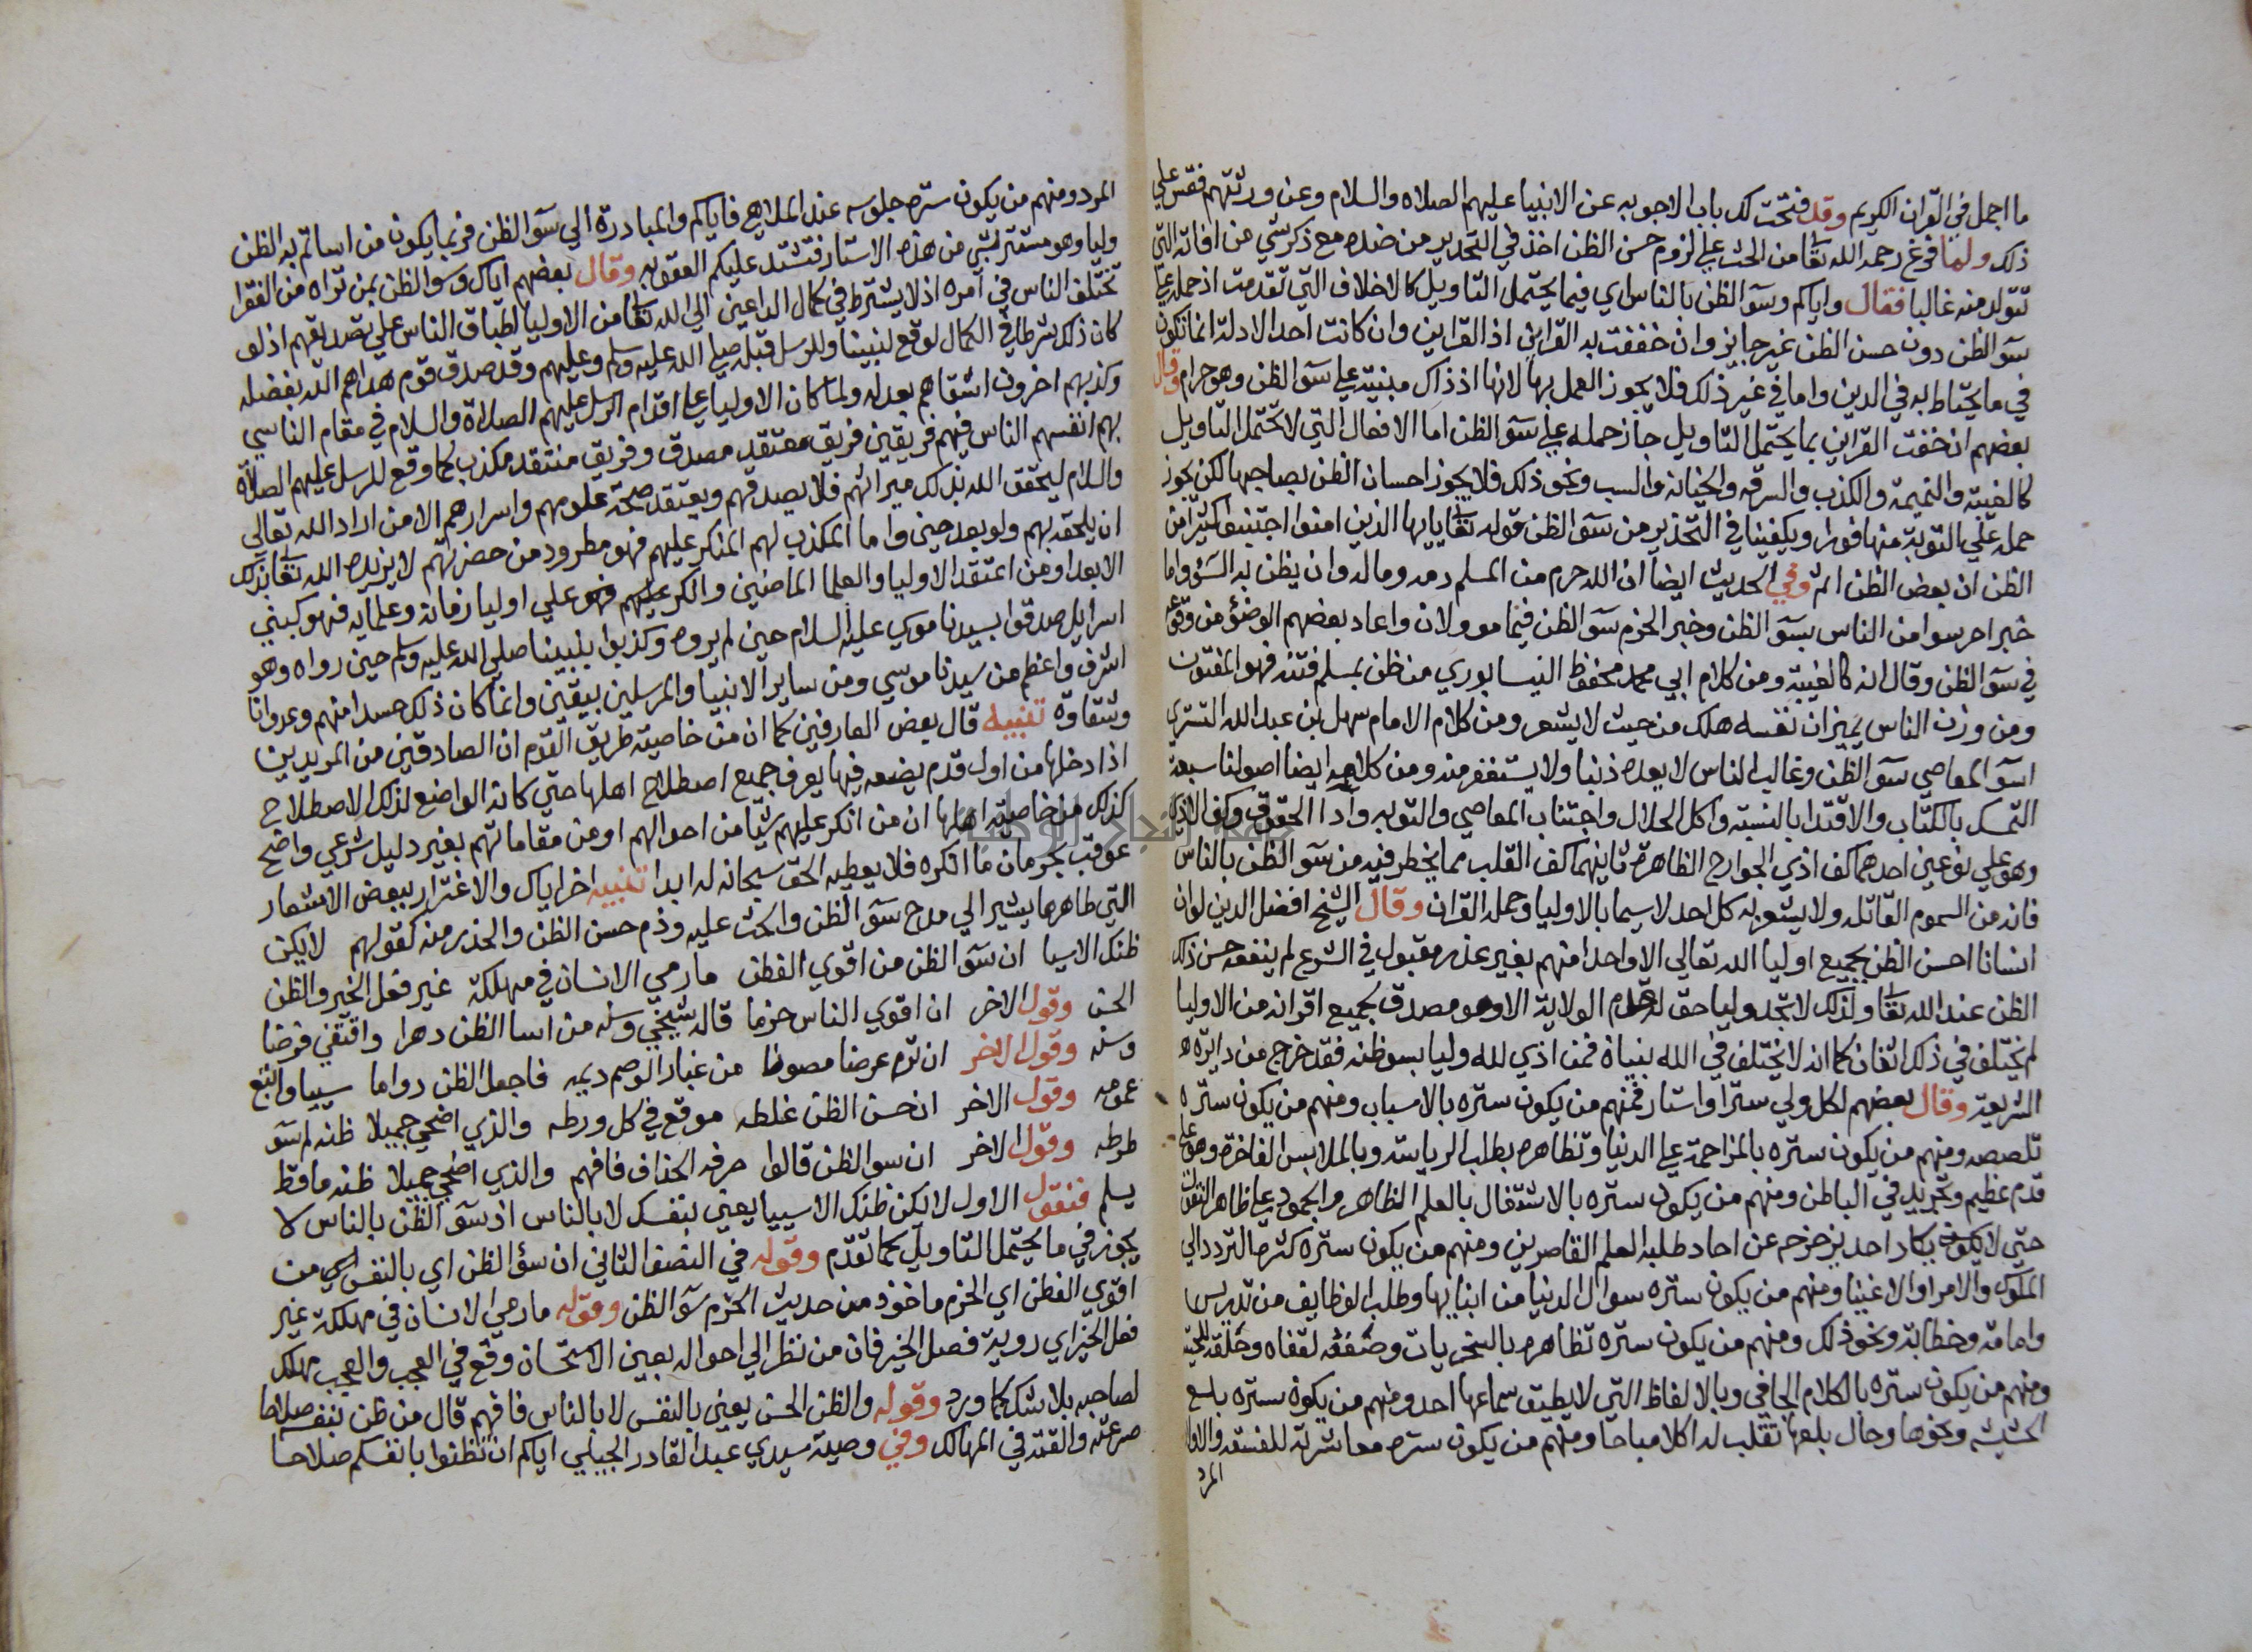 ما اجمل في القران الكريم وقد فتحت لك باب الاجوبه عن الانبيا عليهم الصلاه والسلام وعن ورثتهم فقس علي
ذلك ولما فرغ رحمه الله تعا من الحث علي لزوم حسن الظن اخذ في التحدير من ضده مع ذكر شي من افاته التي
تتولد منه غالبا فقال واياكم وسو الظن بالناس اي فيما يحتمل التاويل كالاخلاف التي تقدمت اذ حمله علي
سو الظن دون حسن الظن غير جايز وان خففت به القراين اذ القراين وان كانت احد الادلة انما تكون
في ما يحتاط به في الدين واما في غير ذلك فلا يجوز العمل بها لانها اذ ذاك مبنية علي سو الظن وهو حرام وقال
بعضهم ان خفت القراين بما يحتمل التاويل جاز حمله علي سو الظن اما الافعال التي لا تحتمل التاويل
كالغيبة والنميمة والكذب والسرقه والخيانه والسب ونحو ذلك فلا يجوز احسان الظن بصاحبها لكن يجوز
حمله علي التوبة منها فورا ويكفينا في التحذير من سو الظن قوله تعا يايها الذين امنوا اجتنبوا كثيرا من
الظن ان بعض الظن اثم وفي الحديث ايضا ان الله حرم من المسلم دمه وماله وان يظن به السو واما
خبر احرسوا من الناس بسو الظن وخبر الحزم سو الظن فيما موولان واعاد بعضهم الوضؤ من وقوعه
في سو الظن وقال انه كالغيبة ومن كلام ابي محمد محفوظ النيسابوري من ظن بمسلم فتنه فهو المفتون
ومن وزن الناس بميزان نفسه هلك من حيث لا يشعر ومن كلام الامام سهل بن عبد الله التستري
اسو المعاصي سو الظن وغالب الناس لا يعده ذنبا ولا يستغفر منه ومن كلامه ايضا اصولنا سبعة
التمسك بالكتاب والاقتدا بالسنته واكل الحلال واجتناب المعاصي والتوبه وادا الحقوق وكف الاذي
وهو علي نوعين احدهما كف اذي الجوارح الظاهرة ثانيهما كف القلب مما يخطر فيه من سو الظن بالناس
فانه من السموم القاتله ولا يشعر به كل احد لاسيما بالاوليا وحملة القران وقال الشيخ افضل الدين لو ان
انسانا احسن الظن بجميع اوليا الله تعالي الا واحدا منهم بغير عذر مقبول في الشرع لم ينفعه حسن ذلك
الظن عند الله تعا ولذلك لا تجد وليا حق له قدم الولاية الا وهو مصدق بجميع اقرانه من الاوليا
لم يختلف في ذلك اثنان كما انه لا يختلف في الله نبيان فمن اذي لله وليا بسو ظنه فقد خرج من دايرة
الشريعة وقال بعضهم لكل ولي سترا واستار فمنهم من يكون ستره بالاسباب ومنهم من يكون ستره
تلصصه ومنهم من يكون ستره بالمزاحمة علي الدنيا وتظاهره بطلب الرياسة وبالملابس الفاخرة وهو علي
قدم عظيم وتجريد في الباطن ومنهم من يكون ستره بالاشتغال بالعلم الظاهر والجمود علي ظاهر النقول
حتي لا يكون يكاد احد يزحزحه عن احاد طلبة العلم القاصرين ومنهم من يكون ستره كثرة التردد الي
الملوك والامرا والاغنيا ومنهم من يكون ستره سوال الدنيا من ابنايها وطلب الوظايف من تدريس
وامامة وخطابة ونحو ذلك ومنهم من يكون ستره تظاهره بالسخريات وصفعه لقفاه وحلقه للحية
ومنهم من يكون ستره بالكلام الجافي وبالالفاظ التي لا يطيق سماعها احد ومنهم من يكون ستره بلع
الحشيشه ونحوها وحال بلعها تنقلب له اكلا مباحا ومنهم من يكون ستره معاشرته للفسقه
المرد
المرد ومنهم من يكون ستره جلوسه عند الملاهي فاياكم والمبادرة الي سو الظن فربما يكون من اساتم به الظن
وليا وهو مستتر بشي من هذه الاستار فتشتد عليكم العقوبه وقال بعضهم اياك وسو الظن بمن تراه من الفقرا
تختلف الناس في امره اذ لا يشترط في كمال الداعين الي الله تعا من الاوليا اطباق الناس علي تصديقهم اذ لو
كان ذلك شرطا في الكمال لوقع لنبينا وللرسل قبله صلي الله عليه وسلم وعليهم وقد صدق قوم هداهم الله بفضله
وكذبهم اخرون اشقاهم بعدله ولما كان الاوليا علي اقدام الرسل عليهم الصلاة والسلام في مقام التاسي
بهم انفسهم الناس فيهم فريقين فريق معتقد مصدق وفريق منتقد مكذب كما وقع للرسل عليهم الصلاة
والسلام ليحقق الله بذلك ميراثهم فلا يصدقهم ويعتقد صحة علومهم واسرارهم الا من اراد الله تعالي
ان يلحقه بهم ولو بعد حين واما المكذب لهم المنكر عليهم فهو مطرود من حضرتهم لا يزيده الله تعا بذلك
الا بعدا ومن اعتقد الاوليا والعلما الماضين وانكر عليهم فهو علي اوليا زمانه وعلمايه فهو كبني
اسرايل صدقوا بسيدنا موسي عليه السلام حين لم يروه وكذبوا بنبينا صلي الله عليه وسلم حين رواه وهو
اشرف واعظم من سيدنا موسي ومن ساير الانبيا والمرسلين بيقين وانما كان ذلك حسدا منهم وعدوانا
وشقاوة تنبيه قال بعض العارفين كما ان من خاصية طريق القوم ان الصادقين من المريدين
اذا دخلها من اول قدم يضعه فيها يعرف جميع اصطلاح اهلها حتي كانه الواضع لذلك الاصطلاح
كذلك من خاصية اهلها ان من انكر عليهم شيا من احوالهم او من مقاماتهم بغير دليل شرعي واضح
عوقب بحرمان ما انكره فلا يعطيه الحق سبحانه له ابدا تنبيه اخر اياك والاغترار ببعض الاشعار
التي ظاهرها يشير الي مدح سو الظن والحث عليه وذم حسن الظن والحذر منه كقولهم لا يكن
ظنك الاسيا ان سو الظن من اقوي الفطن ما رمي الانسان في مهلكة غير فعل الخير والظن
الحسن وقول الاخر ان اقوي الناس حزما قاله شيخي وسنه من اسا الظن دهرا واقتفي فرضا
وسنه وقول الاخر ان ترم عرضا مصونا من غبار الوصم ديمه فاجعل الظن دواما سييا واتبع
عمومه وقول الاخر ان حسن الظن غلطه موقع في كل ورطه والذي اضحي جميلا ظنه لم سو
طرطه وقول الاخر ان سو الظن قالوا حرفه الحذاق فافهم والذي اضحي جميلا ظنه ما قط
يسلم فنقول الاول لا يكن ظنك الا سييا يعني بنفسك لا بالناس اذ سو الظن بالناس لا
يجوز في ما يحتمل التاويل كما تقدم وقوله في النصف الثاني ان سؤ الظن اي بالنفس اي من
اقوي الفطن اي الحزم ماخوذ من حديث الحزم سو الظن وقوله ما رمي الانسان في مهلكة غير
فعل الخير اي روية فعل الخير فان من نظر الي احواله بعين الاستحسان وقع في العجب والعجب مهلك
لصاحبه بلا شك كما ورد وقوله والظن الحسن يعني بالنفس لا بالناس فافهم قال من ظن بنفسه صلاحا
صرعته والقته في المهالك وفي وصية سيدي عبد القادر الجيلي اياكم ان تظنوا بانفسكم صلاحا